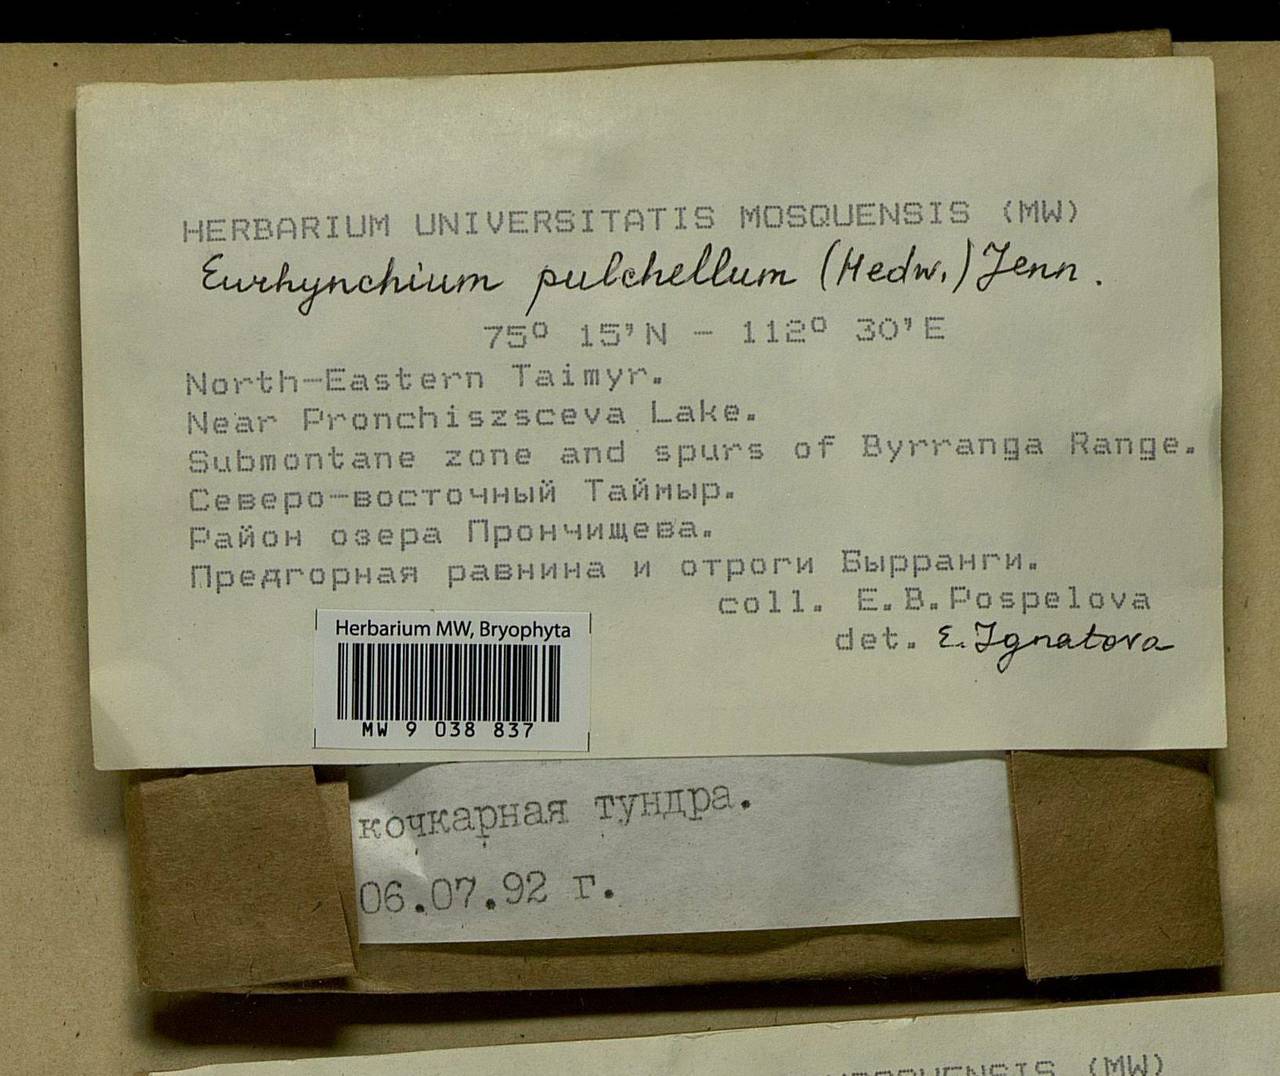 HERBARIUM UNIVERSITATIS MOSQUENSIS (MW)
Eurhynchium pulchellum (Hedw.) Jenn.
75° 15'N - 112° 30'E
North-Eastern Taimyr.
Near Pronchiszsceva Lake.
Submontane zone and spurs of Byrranga Range.
Северо-восточный Таймыр.
Район озера Прончищева.
Предгорная равнина и отроги Бырранги.
coll. E.B.Pospelova
det. E. Ignatova
Herbarium MW, Bryophyta
MW 9 038 837
кочкарная тундра.
06.07.92 г.
(MW)